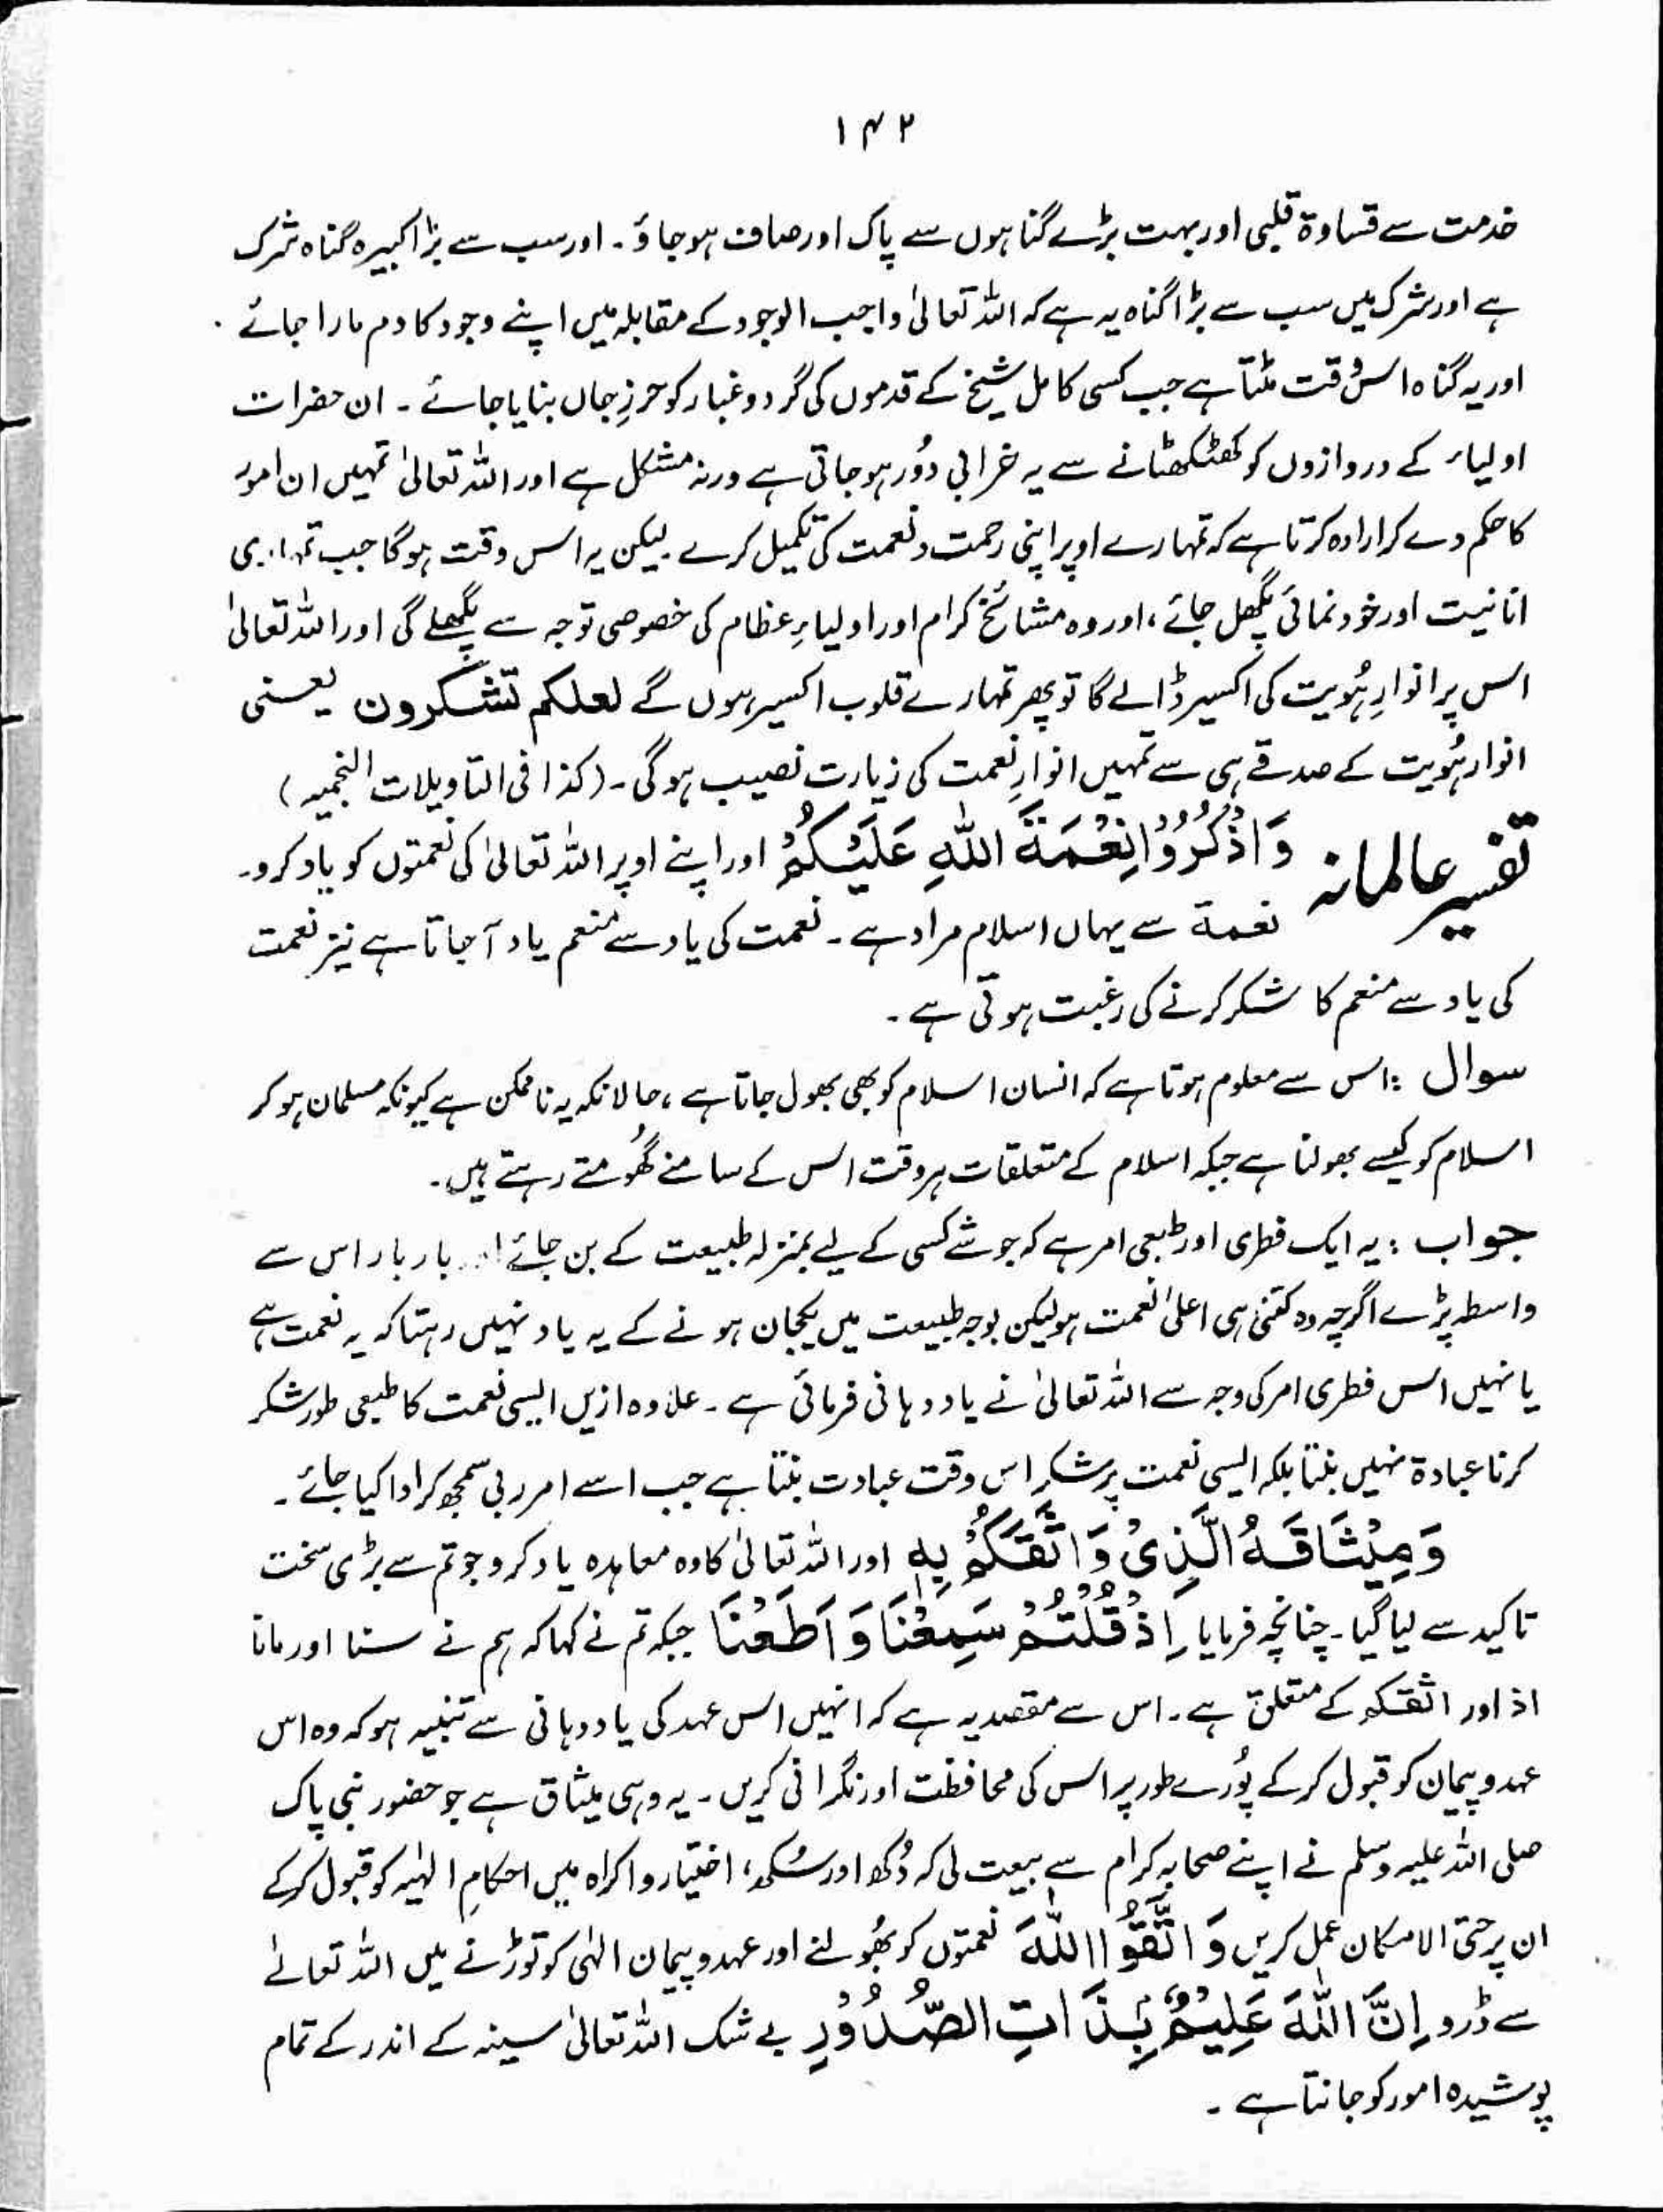 ۱۴۲
خدمت سے قساوۃ قلبی اور بہت بڑے گناہوں سے پاک اور صاف ہو جاؤ۔ اور سب سے بڑا کبیرہ گناہ شرک
ہے اور شرک میں سب سے بڑا گناہ یہ ہے کہ اللہ تعالیٰ واجب الوجود کے مقابلہ میں اپنے وجود کا دم مارا جائے۔
اور یہ گناہ اس وقت مٹتا ہے جب کسی کامل شیخ کے قدموں کی گرد و غبار کو حرزِ جاں بنایا جائے۔ ان حضرات
اولیاء کے دروازوں کو کھٹکھٹانے سے یہ خرابی دُور ہو جاتی ہے ورنہ مشکل ہے اور اللہ تعالیٰ تمہیں ان امور
کا حکم دے کر ارادہ کرتا ہے کہ تمہارے اوپر اپنی رحمت و نعمت کی تکمیل کرے۔ لیکن یہ اس وقت ہوگا جب تمہاری
انانیت اور خود نمائی پگھل جائے، اور وہ مشائخ کرام اور اولیاءِ عظام کی خصوصی توجہ سے پگھلے گی اور اللہ تعالیٰ
اس پر انوارِ ہُویت کی اکسیر ڈالے گا تو پھر تمہارے قلوب اکسیر ہوں گے لعلکم تشکرون یعنی
انوار ہُویت کے صدقے ہی سے تمہیں انوارِ نعمت کی زیارت نصیب ہوگی۔ (کذا فی التاویلات النجمیہ)
تفسیر عالمانہ وَاذْكُرُوْا نِعْمَةَ اللّٰهِ عَلَيْكُمْ اور اپنے اوپر اللہ تعالیٰ کی نعمتوں کو یاد کرو۔
نعمة سے یہاں اسلام مراد ہے۔ نعمت کی یاد سے منعم یاد آ جاتا ہے نیز نعمت
کی یاد سے منعم کا شکر کرنے کی رغبت ہوتی ہے۔
سوال : اس سے معلوم ہوتا ہے کہ انسان اسلام کو بھی بھول جاتا ہے، حالانکہ یہ ناممکن ہے کیونکہ مسلمان ہو کر
اسلام کو کیسے بھولنا ہے جبکہ اسلام کے متعلقات ہر وقت اس کے سامنے گھُومتے رہتے ہیں۔
جواب : یہ ایک فطری اور طبعی امر ہے کہ جو شے کسی کے لیے بمنزلہ طبیعت کے بن جائے اور بار بار اس سے
واسطہ پڑے اگرچہ وہ کتنی ہی اعلیٰ نعمت ہو لیکن بوجہ طبیعت میں یکجان ہونے کے یہ یاد نہیں رہتا کہ یہ نعمت ہے
یا نہیں اس فطری امر کی وجہ سے اللہ تعالیٰ نے یاد دہانی فرمائی ہے۔ علاوہ ازیں ایسی نعمت کا طبعی طور شکر
کرنا عبادۃ نہیں بنتا بلکہ ایسی نعمت پر شکر اس وقت عبادت بنتا ہے جب اسے امر ربی سمجھ کر ادا کیا جائے۔
وَمِيْثَاقَهُ الَّذِیْ وَاثَقَكُمْ بِهٖ اور اللہ تعالیٰ کا وہ معاہدہ یاد کرو جو تم سے بڑی سخت
تاکید سے لیا گیا۔ چنانچہ فرمایا اِذْ قُلْتُمْ سَمِعْنَا وَاَطَعْنَا جبکہ تم نے کہا کہ ہم نے سنا اور مانا
اذ اور اثقکم کے متعلق ہے۔ اس سے مقصد یہ ہے کہ انہیں اس عہد کی یاد دہانی سے تنبیہ ہو کہ وہ اس
عہد و پیمان کو قبول کر کے پُورے طور پر اس کی محافظت اور نگرانی کریں۔ یہ وہی میثاق ہے جو حضور نبی پاک
صلی اللہ علیہ وسلم نے اپنے صحابہ کرام سے بیعت لی کہ دُکھ اور سُکھ، اختیار و اکراہ میں احکامِ الہٰیہ کو قبول کر کے
ان پر حتی الامکان عمل کریں وَاتَّقُوا اللّٰهَ نعمتوں کو بھُولنے اور عہد و پیمان الہٰی کو توڑنے میں اللہ تعالےٰ
سے ڈرو اِنَّ اللّٰهَ عَلِيْمٌۢ بِذَاتِ الصُّدُوْرِ بے شک اللہ تعالیٰ سینہ کے اندر کے تمام
پوشیدہ امور کو جانتا ہے۔